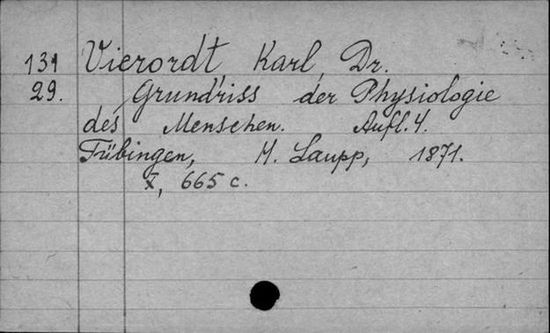 131 Vierordt Karl, Dr.
29. Grundriss der Physiologie
des Menschen. Aufl. 4.
Tübingen, H. Laupp, 1871.
X, 665 c.